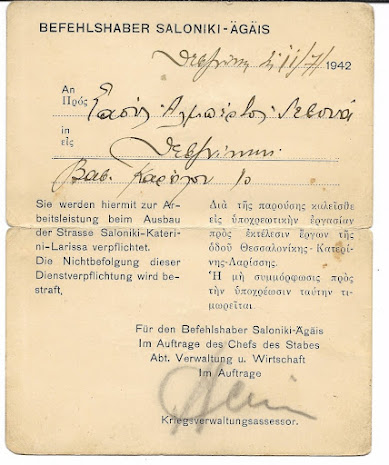 BEFEHLSHABER SALONIKI-ÄGÄIS
11/7/ 1942
An
Πρός
in
εἰς
Βασ. Καρόλου 10
Sie werden hiermit zur Ar-
beitsleistung beim Ausbau
der Strasse Saloniki-Kateri-
ni-Larissa verpflichtet.
Die Nichtbefolgung dieser
Dienstverpflichtung wird be-
straft.
Διὰ τῆς παρούσης καλεῖσθε
εἰς ὑποχρεωτικὴν ἐργασίαν
πρὸς ἐκτέλεσιν ἔργων τῆς
ὁδοῦ Θεσσαλονίκης-Κατερί-
νης-Λαρίσσης.
Ἡ μὴ συμμόρφωσις πρὸς
τὴν ὑποχρέωσιν ταύτην τι-
μωρεῖται.
Für den Befehlshaber Saloniki-Ägäis
Im Auftrage des Chefs des Stabes
Abt. Verwaltung u. Wirtschaft
Im Auftrage
Kriegsverwaltungsassessor.